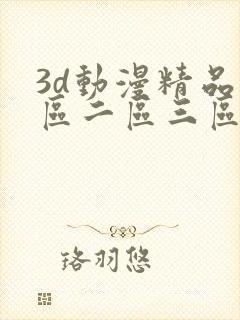 3d動漫精品
區二區三區
珞羽悠